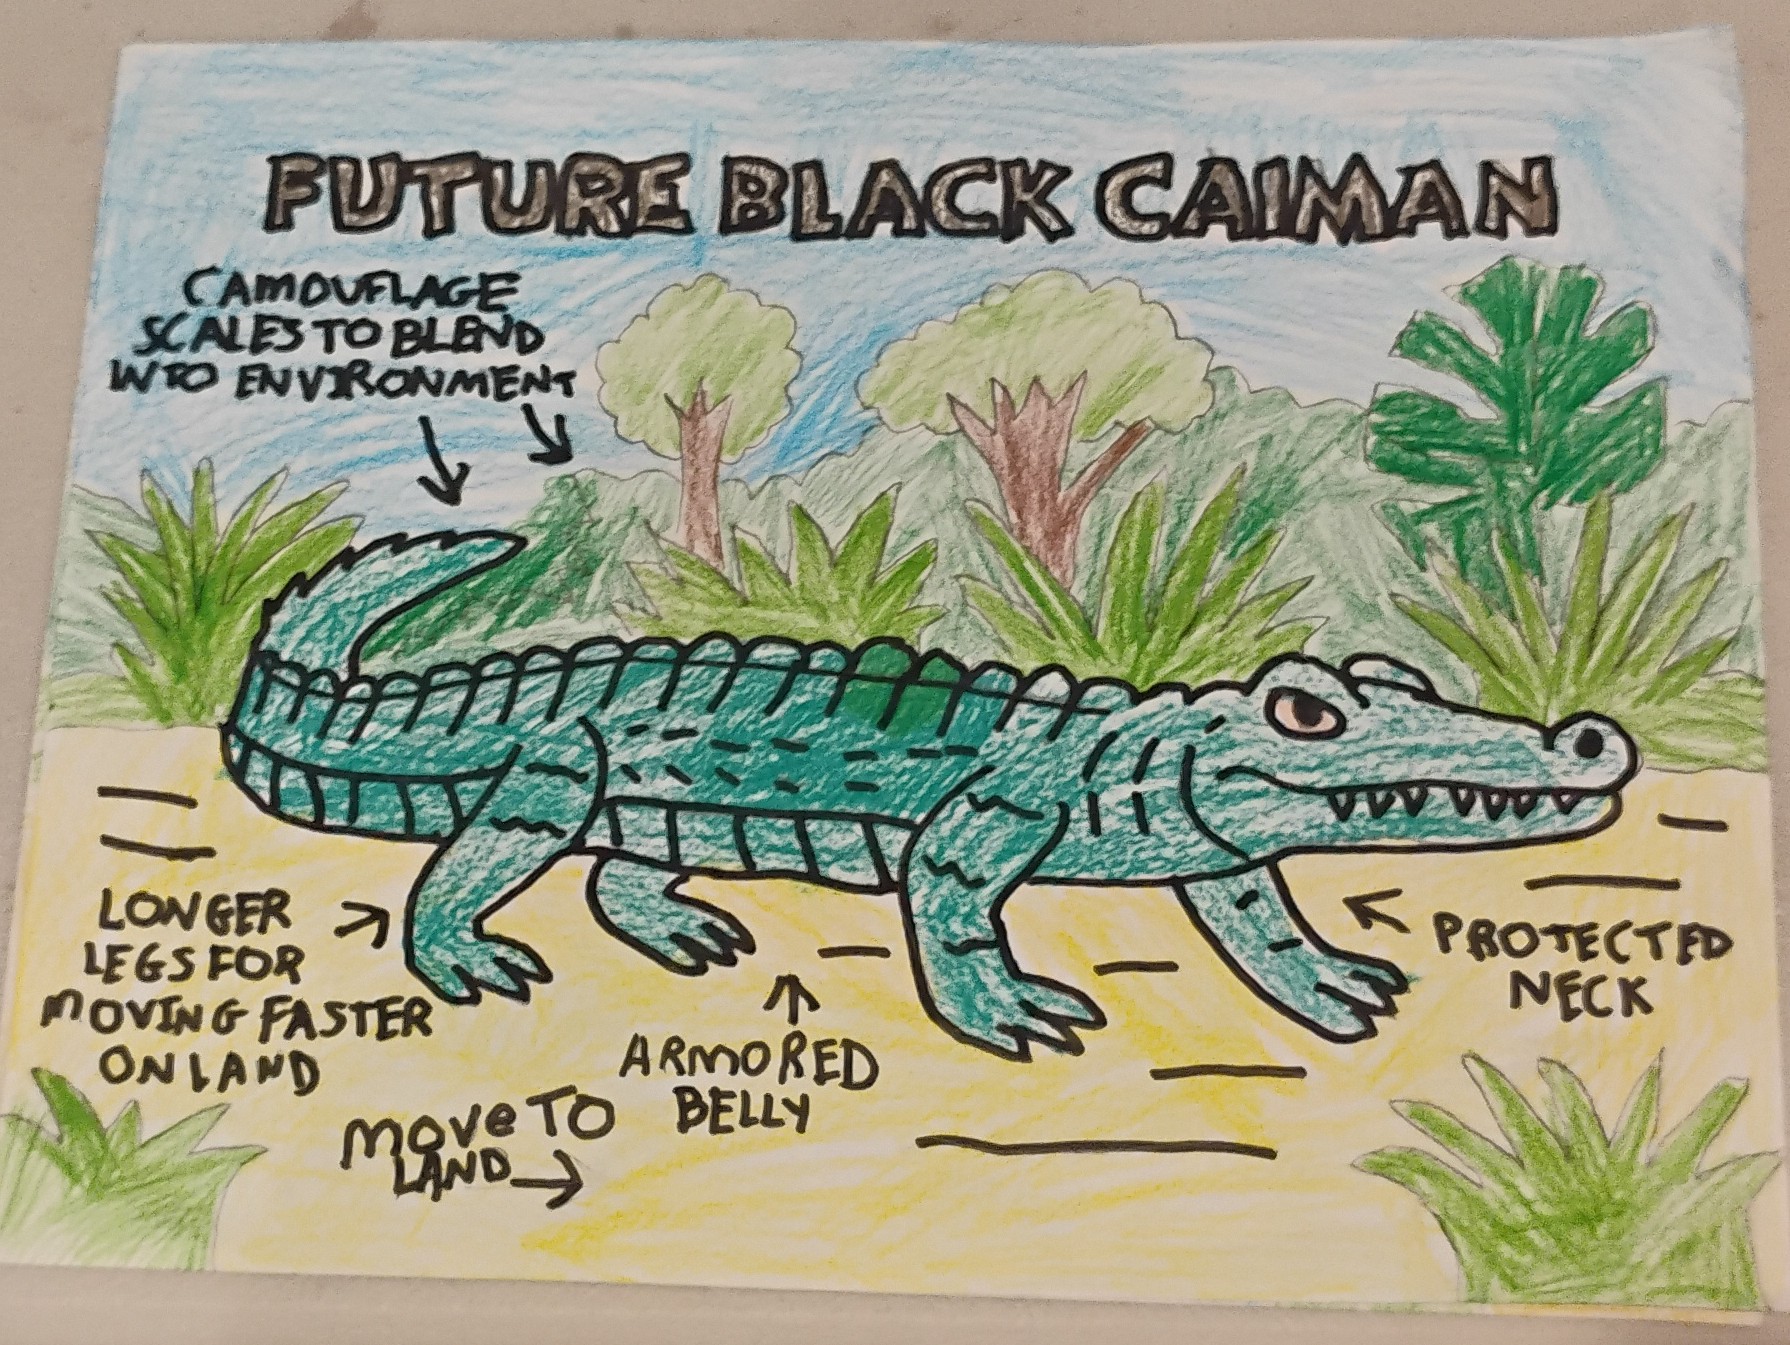 FUTURE BLACK CAIMAN
CAMOUFLAGE
SCALES TO BLEND
INTO ENVIRONMENT
LONGER
LEGS FOR
MOVING FASTER
ON LAND
MOVE TO
LAND
ARMORED
BELLY
PROTECTED
NECK